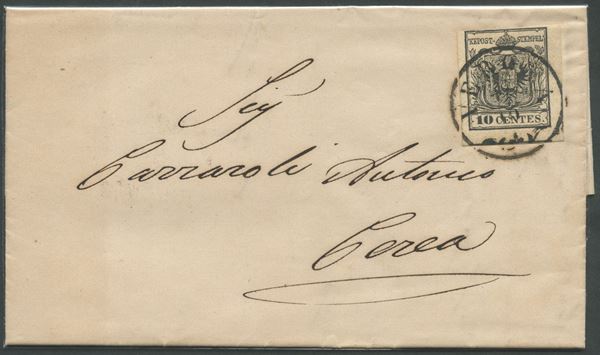 KKPOST-STEMPEL
10 CENTES.
Sig
Carraroli Antonio
Cerea